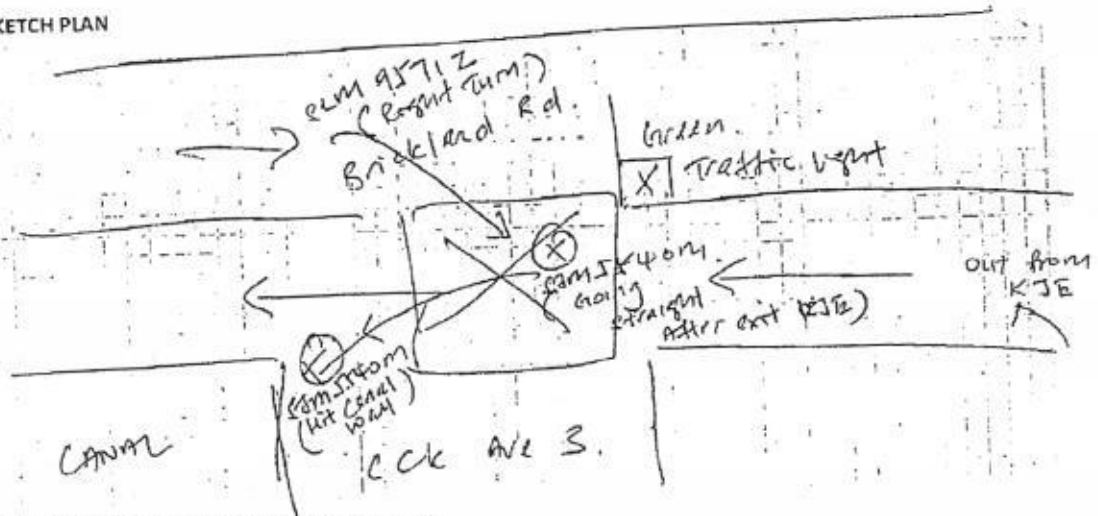 KETCH PLAN
9571Z
(Right Turn)
Brickland Rd.
Green
X Traffic Light
X
Going
straight
After exit (KJE)
Out from
KJE
(Hit Canal
Wall)
CANAL
CCK Ave 3.